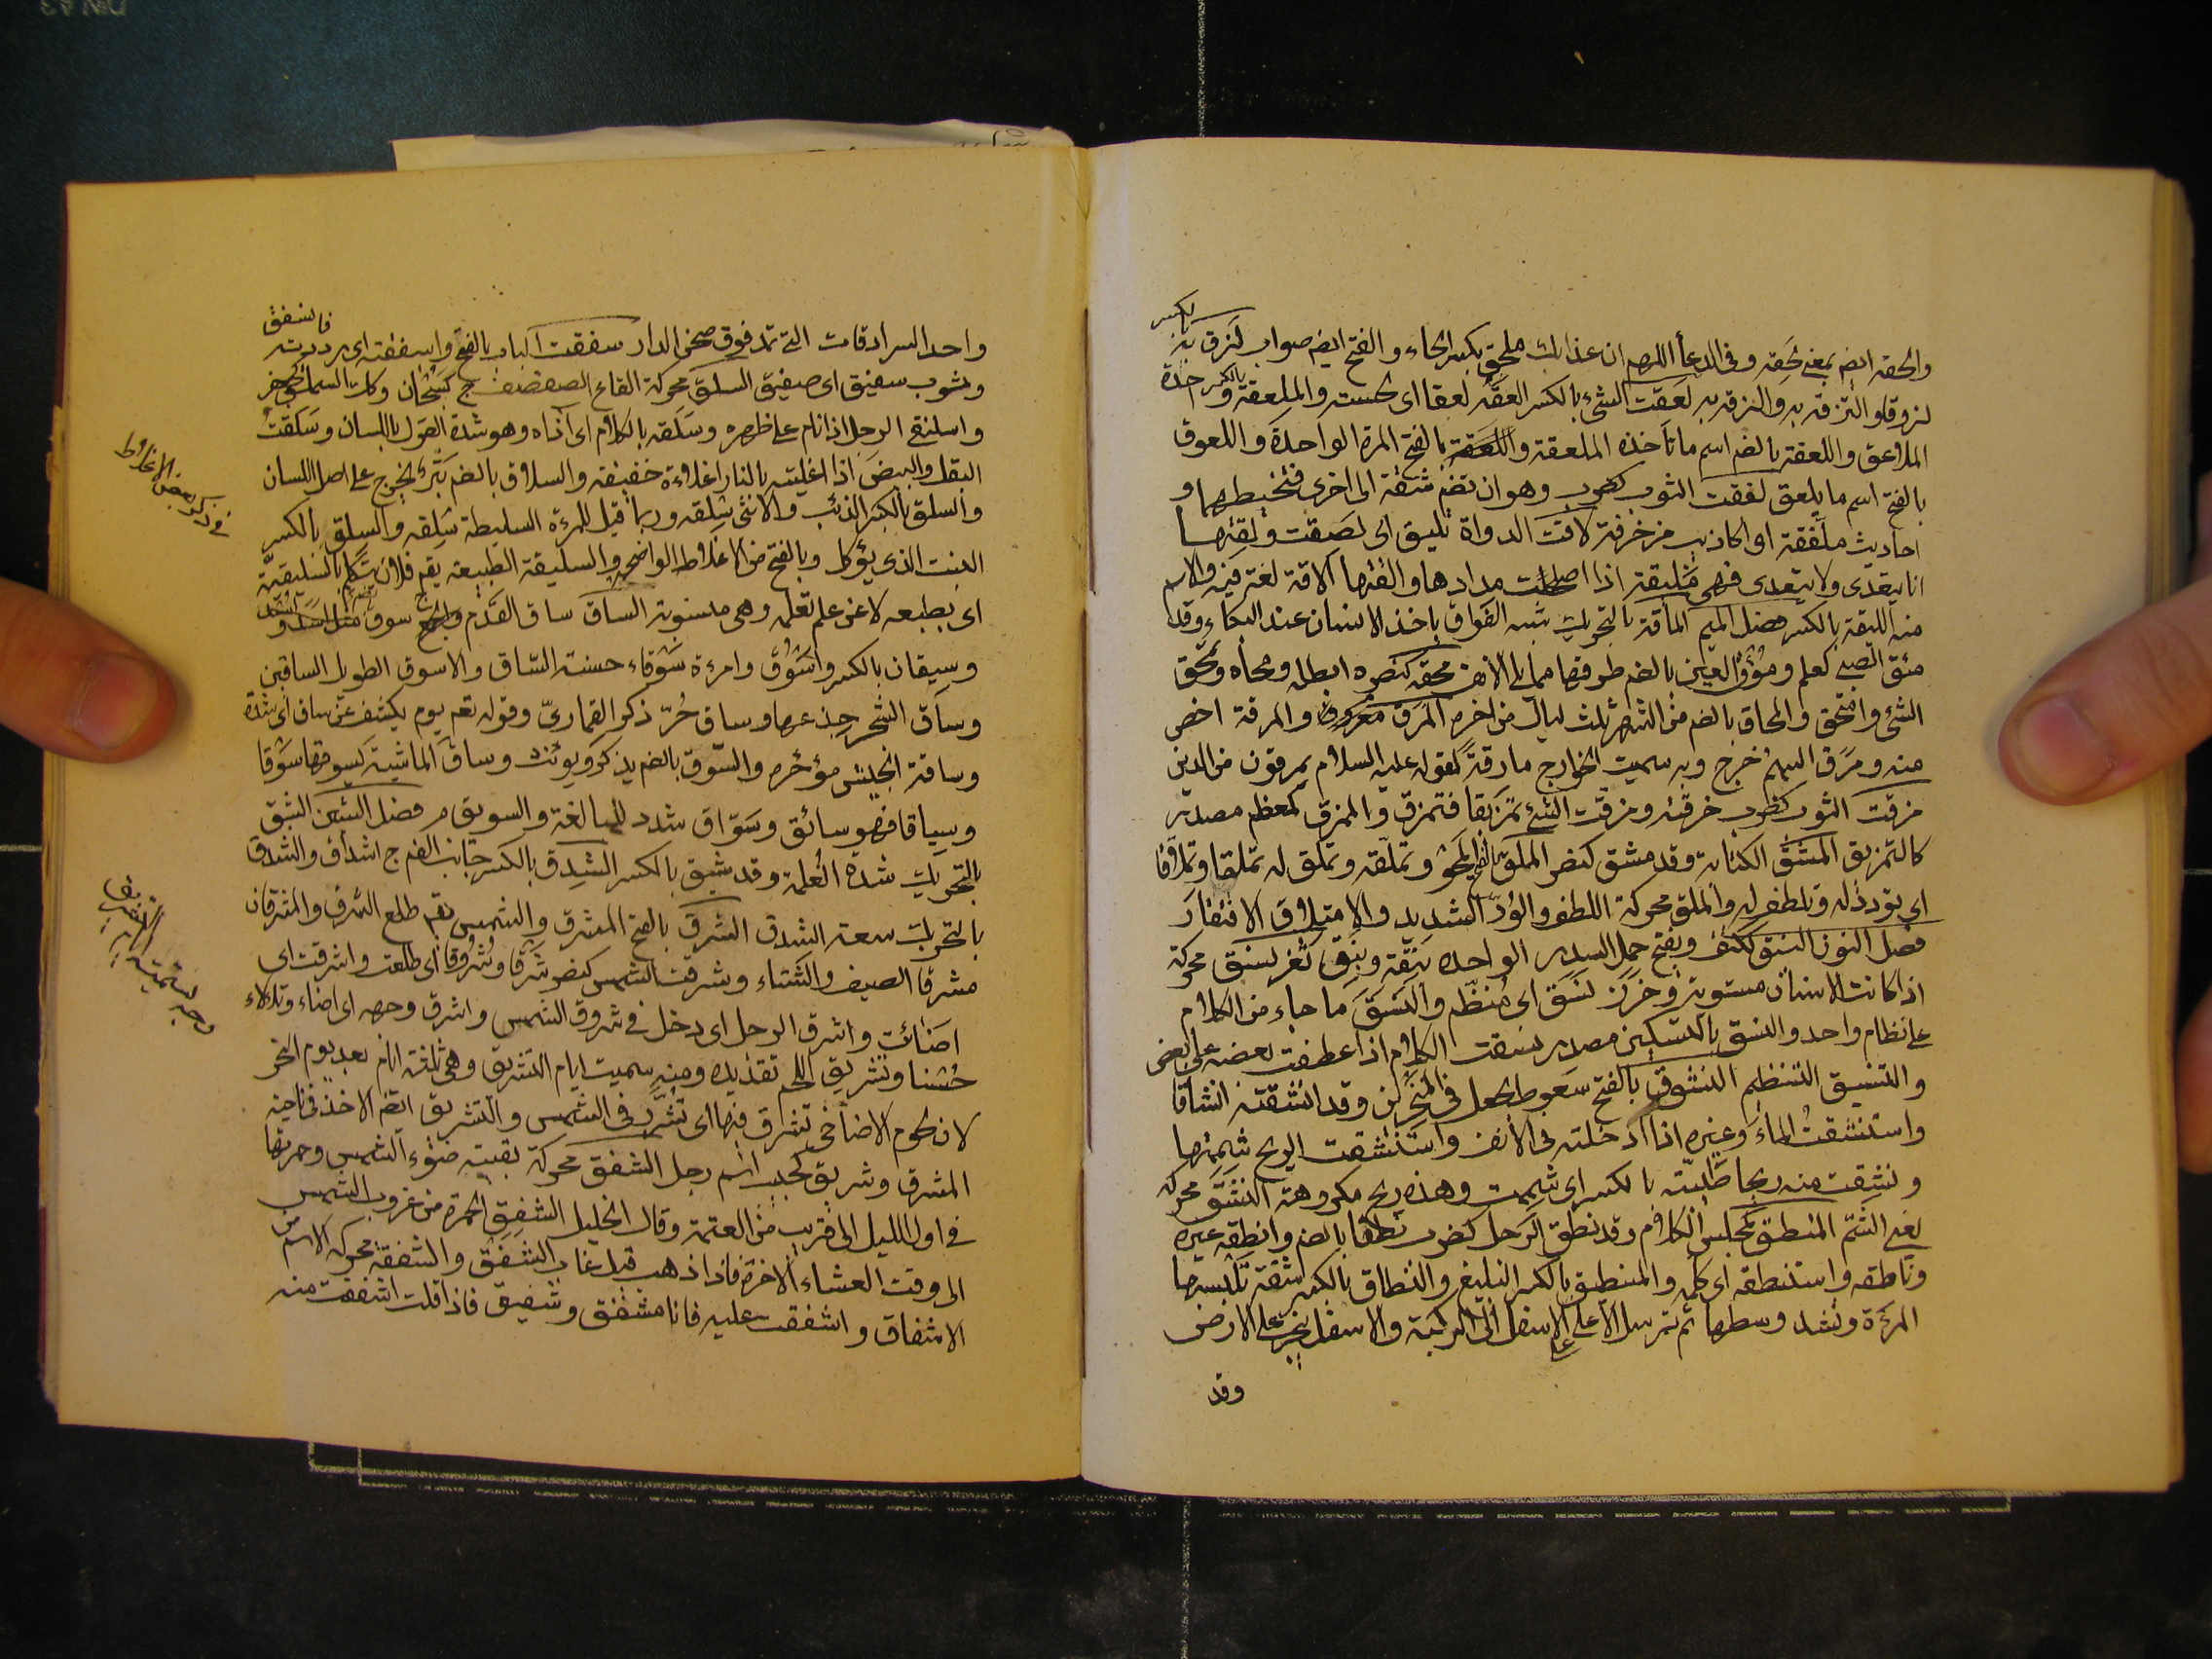 والحقه ايضا بمعنى لحقه وفى الدعأ اللهم ان عذابك ملحق بكسر الحاء والفتح ايضا صواب لزق به
بالكسر
لزوقا والتزق به والزقه به لعقت الشئ بالكسر العقه لعقا اى لحسته والملعقة بالكسر واحدة
الملاعق واللعقة بالضم اسم ما تأخذه الملعقة واللعقة بالفتح المرة الواحدة واللعوق
بالفتح اسم ما يلعق لفقت الثوب كضرب وهو ان تضم شقة الى اخرى فتخيطهما و
احاديث ملفقة اى اكاذيب مزخرفة لاقت الدواة تليق اى لصقت ولقتها
انا يتعدى ولا يتعدى فهى مليقة اذا اصلحت مدادها والقتها الاقة لغة فيه والاسم
منه الليقة بالكسر فصل الميم المأقة بالتحريك شبه الفواق ياخذ الانسان عند البكاء وقد
مئق الصبى كعلم ومؤق العين بالضم طرفها مما يلى الانف محقه كنصره ابطله ومحاه وتمحق
الشئ وامتحق والمحاق بالضم من الشهر ثلث ليال من اخره المرق معروف والمرقة اخص
منه ومرق السهم خرج وبه سميت الخوارج مارقة لقوله عليه السلام يمرقون من الدين
مزقت الثوب كضرب خرقته ومزقت الشئ تمزيقا فتمزق والممزق كمعظم مصدر
كالتمزيق المشق الكتابة وقد مشق كنصر الملق بالفتح المحو وتملقه وتملق له تملقا وتملاقا
اى تودد له وتلطف له والملق محركة اللطف والود الشديد والاملاق الافتقار
فصل النون النبق ككتف ويفتح حمل السدر الواحدة نبقة ونبق ثغر نسق محركة
اذا كانت الاسنان مستوية وخرز نسق اى منظم والنسق ما جاء من الكلام
على نظام واحد والنسق بالتسكين مصدر نسقت الكلام اذا عطفت بعضه على بعض
والتنسيق التنظيم النشوق بالفتح سعوط يجعل فى المنخرين وقد انشقته انشاقا
واستنشقت الماء وغيره اذا ادخلته فى الانف واستنشقت الريح شممتها
ونشقت منه ريحا طيبة بالكسر اى شممت وهذه ريح مكروهة النشق محركة
يعنى الشم المنطق كمجلس الكلام وقد نطق الرجل كضرب نطقا بالضم وانطقه غيره
وناطقه واستنطقه اى كلمه والمنطيق بالكسر البليغ والنطاق بالكسر شقة تلبسها
المرءة وتشد وسطها ثم ترسل الاعلى على الاسفل الى الركبة والاسفل ينجر على الارض
وقد
فانسفق
واحد السرادقات التى تمد فوق صحن الدار سفقت الباب بالفتح واسفقته اى رددته
وثوب سفيق اى صفيق السلق محركة القاع الصفصف ج كسمان
واسلنقى الرجل اذا نام على ظهره وسلقه بالكلام اى آذاه وهو شدة القول باللسان وسلقت
البقل والبيض اذا اغليته بالنار اغلاءة خفيفة والسلاق بالضم بثر يخرج على اصل اللسان
والسلق بالكسر الذئب والانثى سلقه وربما قيل للمرءة السليطة سلقه والسلق بالكسر
النبت الذى يؤكل وبالفتح من الاغلاط الواضحة والسليقة الطبيعة يقم فلان يتكلم بالسليقية
اى بطبعه لا عن علم تعلمه وهى منسوبة الساق ساق القدم والجمع سوق مثل اسد واسد
وسيقان بالكسر واسوق وامرءة سوقاء حسنة الساق والاسوق الطويل الساقين
وساق الشجر جذعها وساق حر ذكر القمارى وقوله تعم يوم يكشف عن ساق اى شدة
وساقة الجيش مؤخره والسوق بالضم يذكر ويؤنث وساق الماشية يسوقها سوقا
وسياقا فهو سائق وسواق شدد للمبالغة والسويق م فصل الشين الشبق
بالتحريك شدة الغلمة وقد شبق بالكسر الشدق بالكسر جانب الفم ج اشداق والشدق
بالتحريك سعة الشدق الشرق بالفتح المشرق والشمس يقم طلع الشرق والمشرقان
مشرقا الصيف والشتاء وشرقت الشمس كنصر شرقا وشروقا اى طلعت واشرقت اى
اضائت واشرق الرجل اى دخل فى شروق الشمس واشرق وجهه اى اضاء وتلألاء
حسنا وتشريق اللحم تقديده ومنه سميت ايام التشريق وهى ثلثة ايام بعد يوم النحر
لان لحوم الاضاحى تشرق فيها اى تشرر فى الشمس والتشريق ايضا الاخذ فى ناحية
المشرق وشريق كحبيب اسم رجل الشفق محركة بقية ضوء الشمس وحمرتها
فى اول الليل الى قريب من العتمة وقال الخليل الشفق الحمرة من غروب الشمس
الى وقت العشاء الاخرة فاذا ذهب قيل غاب الشفق والشفقة محركة الاسم من
الاشفاق واشفقت عليه فانا مشفق وشفيق فاذا قلت اشفقت منه
فى ذكر بعض الاغلاط
وجه تسمية ايام التشريق